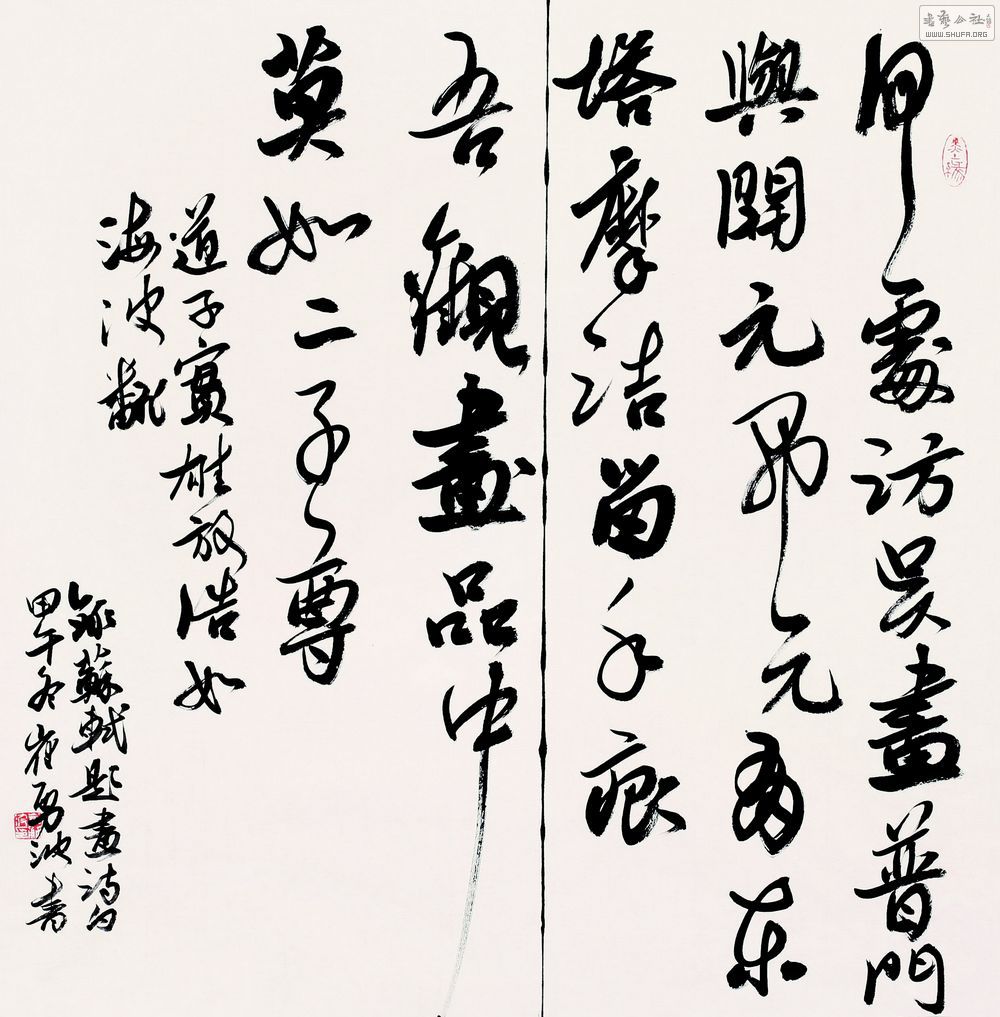 何處訪吳畫普門
與開元開元有東
塔摩詰留手痕
吾觀畫品中
莫如二子尊
道子實雄放浩如
海波翻
錄蘇軾題畫詩句
甲午冬崔勇波書
書藝公社
WWW.SHUFA.ORG